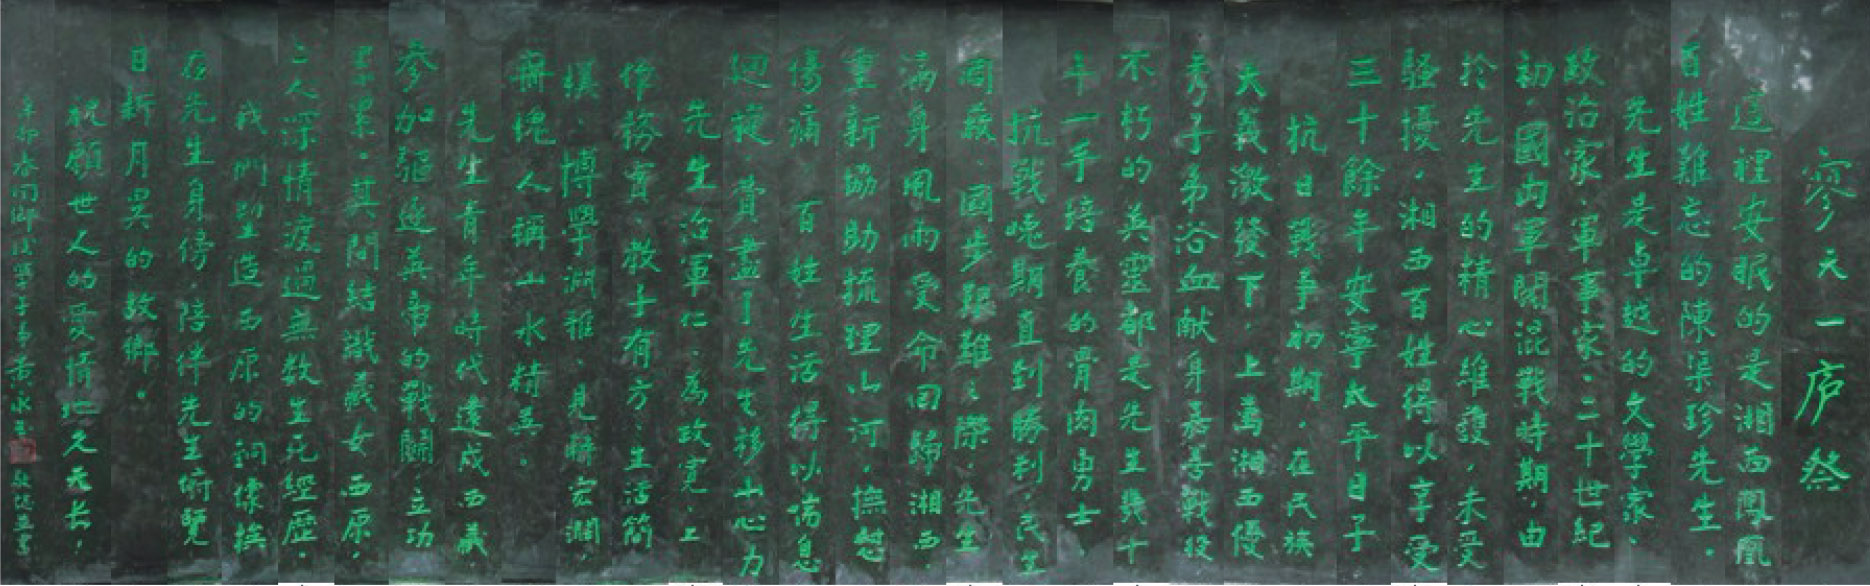 寥天一庐祭
這裡安眠的是湘西鳳凰
百姓難忘的陳渠珍先生。
先生是卓越的文學家、
政治家、軍事家。二十世紀
初，國內軍閥混戰時期，由
於先生的精心維護，未受
騷擾，湘西百姓得以享受
三十餘年安寧太平日子
抗日戰爭初期，在民族
大義激發下，上萬湘西優
秀子弟浴血献身嘉善戰役
不朽的英靈都是先生幾十
年一手培養的骨肉勇士、
抗戰晚期直到勝利，民生
凋敝、國步艱難之際，先生
滿身風雨受命回歸湘西，
重新協助梳理山河，撫慰
傷痛，百姓生活得以喘息
迴復，費盡了先生移山心力
先生治軍仁、為政寬、上
作務實、教子有方、生活簡
樸、博學淵雅、見解宏濶，
無愧人稱山水精英。
先生青年時代遠戍西藏，
參加驅逐英帝的戰鬭，立功
累累。其間結識藏女西原，
二人深情渡過無數生死經歷。
我們塑造西原的銅像挨
在先生身傍，陪伴先生俯覽
日新月異的故鄉。
祝願世人的愛情地久天長，
辛卯春同鄉晚學子弟黄永玉